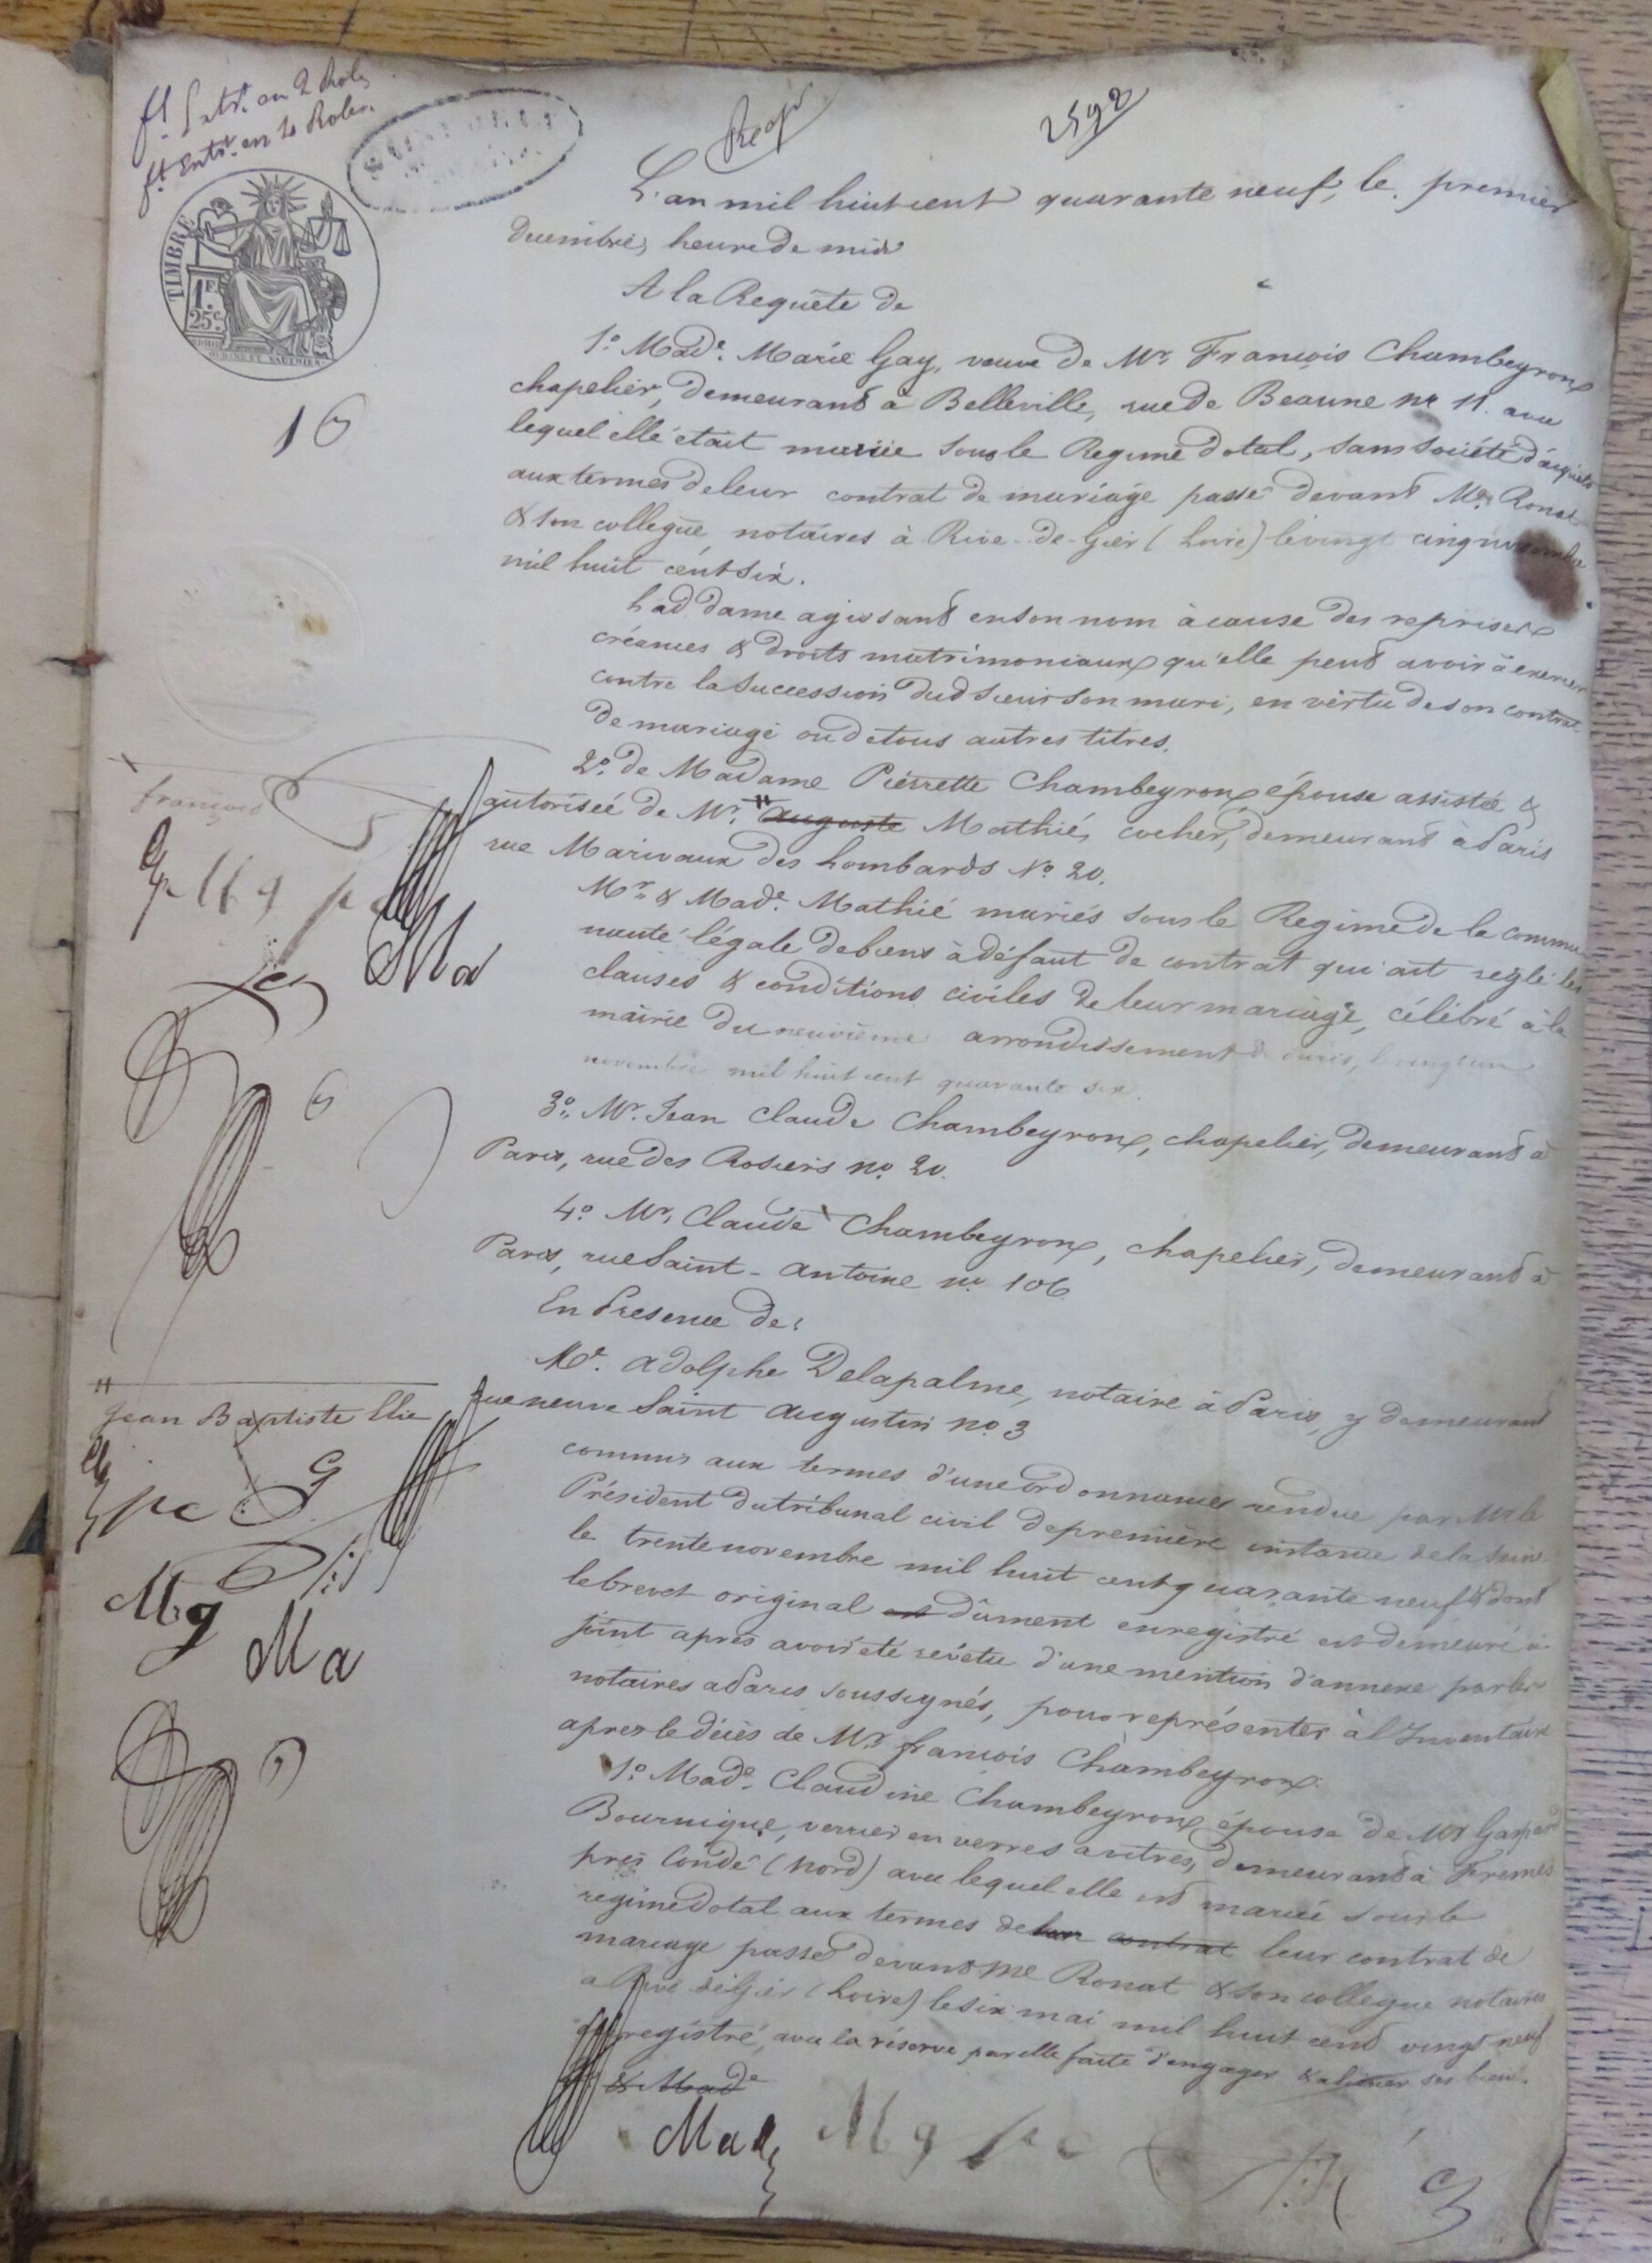 ft Extr. en 2 Roles
ft Entr. en 10 Roles.
2592
TIMBRE
1F.
25c.
16
L'an mil huit cent quarante neuf, le premier
decembre, heure de midi
A la Requête de
1º Made. Marie Gay, veuve de Mr. François Chambeyron
chapelier, demeurant à Belleville, rue de Beaune no 11. avec
lequel elle était mariée sous le Regime dotal, sans société d'acquêts
aux termes de leur contrat de mariage passé devant Me. Ronat
& son collegue notaires à Rive-de-Gier (Loire) le vingt cinq novembre
mil huit cent six.
Lad. dame agissant en son nom à cause des reprises
créances & droits matrimoniaux qu'elle peut avoir à exercer
contre la succession dud. sieur son mari, en vertu de son contrat
de mariage ou de tous autres titres.
2º de Madame Pierrette Chambeyron épouse assistée &
autorisée de Mr. Auguste Mathié, cocher, demeurant à Paris
rue Marivaux des Lombards No 20.
Mr. & Made. Mathié mariés sous le Regime de la commu
nauté légale de biens à défaut de contrat qui ait reglé les
clauses & conditions civiles de leur mariage, célébré à la
mairie du neuvième arrondissement de Paris, le vingt un
novembre mil huit cent quarante six.
3º Mr. Jean Claude Chambeyron, chapelier, demeurant à
Paris, rue des Rosiers no. 20.
4º Mr. Claude Chambeyron, chapelier, demeurant à
Paris, rue Saint-Antoine no. 106
En Présence de:
Me. Adolphe Delapalme, notaire à Paris, y demeurant
rue neuve Saint Augustin no. 3
commis aux termes d'une ordonnance rendue par Mr. le
Président du tribunal civil de première instance de la Seine
le trente novembre mil huit cent quarante neuf & dont
le brevet original est dûment enregistré est demeuré ci
joint après avoir été revêtu d'une mention d'annexe par les
notaires a Paris soussignés, pour représenter à l'Inventaire
apres le décès de Mr. françois Chambeyron.
1º Made. Claudine Chambeyron épouse de Mr. Gaspard
Bournique, verrier en verres a vitres, demeurant à Fresnes
près Condé (Nord) avec lequel elle est mariée sous le
regime dotal aux termes de leur contrat leur contrat de
mariage passé devant Me Ronat & son collegue notaires
a Rive de Gier (Loire) le six mai mil huit cent vingt neuf
enregistré, avec la réserve par elle faite d'engager & aliéner ses biens.
& Made
françois
Mg pc
Ma
Jean Baptiste Elie
pc
Mg
Ma
Ma Mg pc